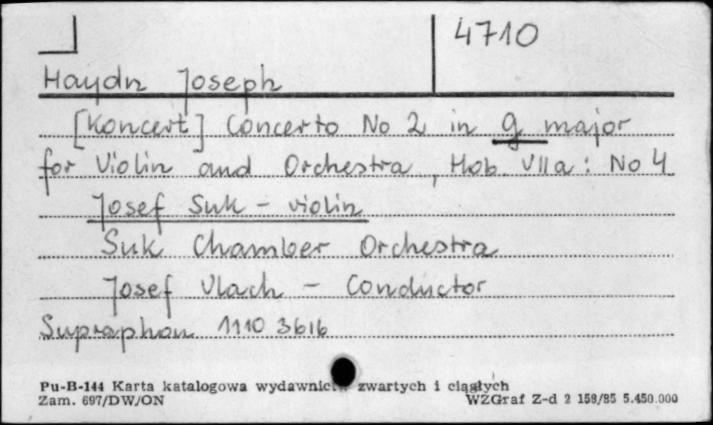 4710
Haydn Joseph
[Koncert] Concerto No 2 in g major
for Violin and Orchestra, Hob. VIIa: No 4
Josef Suk - violin
Suk Chamber Orchestra
Josef Vlach - Conductor
Supraphon 1110 3616
Pu-B-144 Karta katalogowa wydawnictw zwartych i ciągłych
Zam. 697/DW/ON WZGraf Z-d 2 158/85 5.450.000